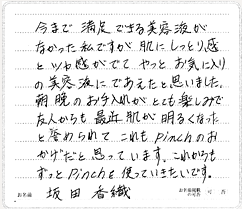 今まで 満足できる美容液が
なかった私ですが 肌にしっとり感
とツヤ感がでて やっと お気に入り
の美容液にであえたと思いました。
朝晩のお手入れがとても楽しみで
友人からも 最近 肌が 明るくなった
と誉められて これも Pinchのお
かげだと思っています。これからも
ずっと Pinchを使っていきたいです。
お名前 坂田 香織 お名前掲載の可否 可 否